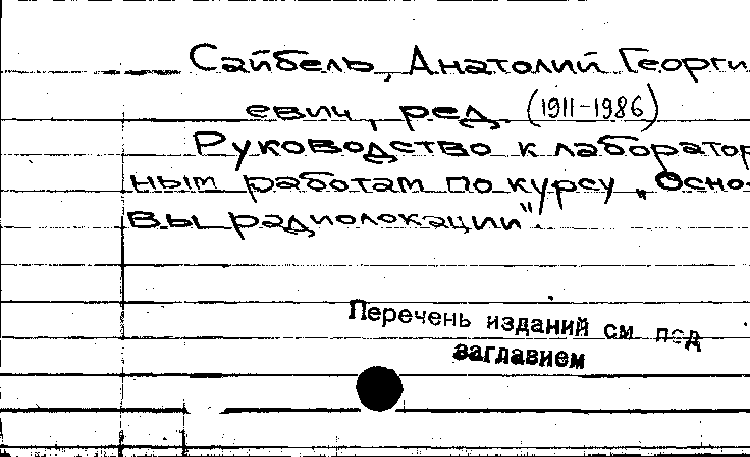 Сайбель, Анатолий Георги
евич, ред. (1911-1986)
Руководство к лаборатор
ным работам по курсу „Осно-
вы радиолокации".
Перечень изданий см под
заглавием